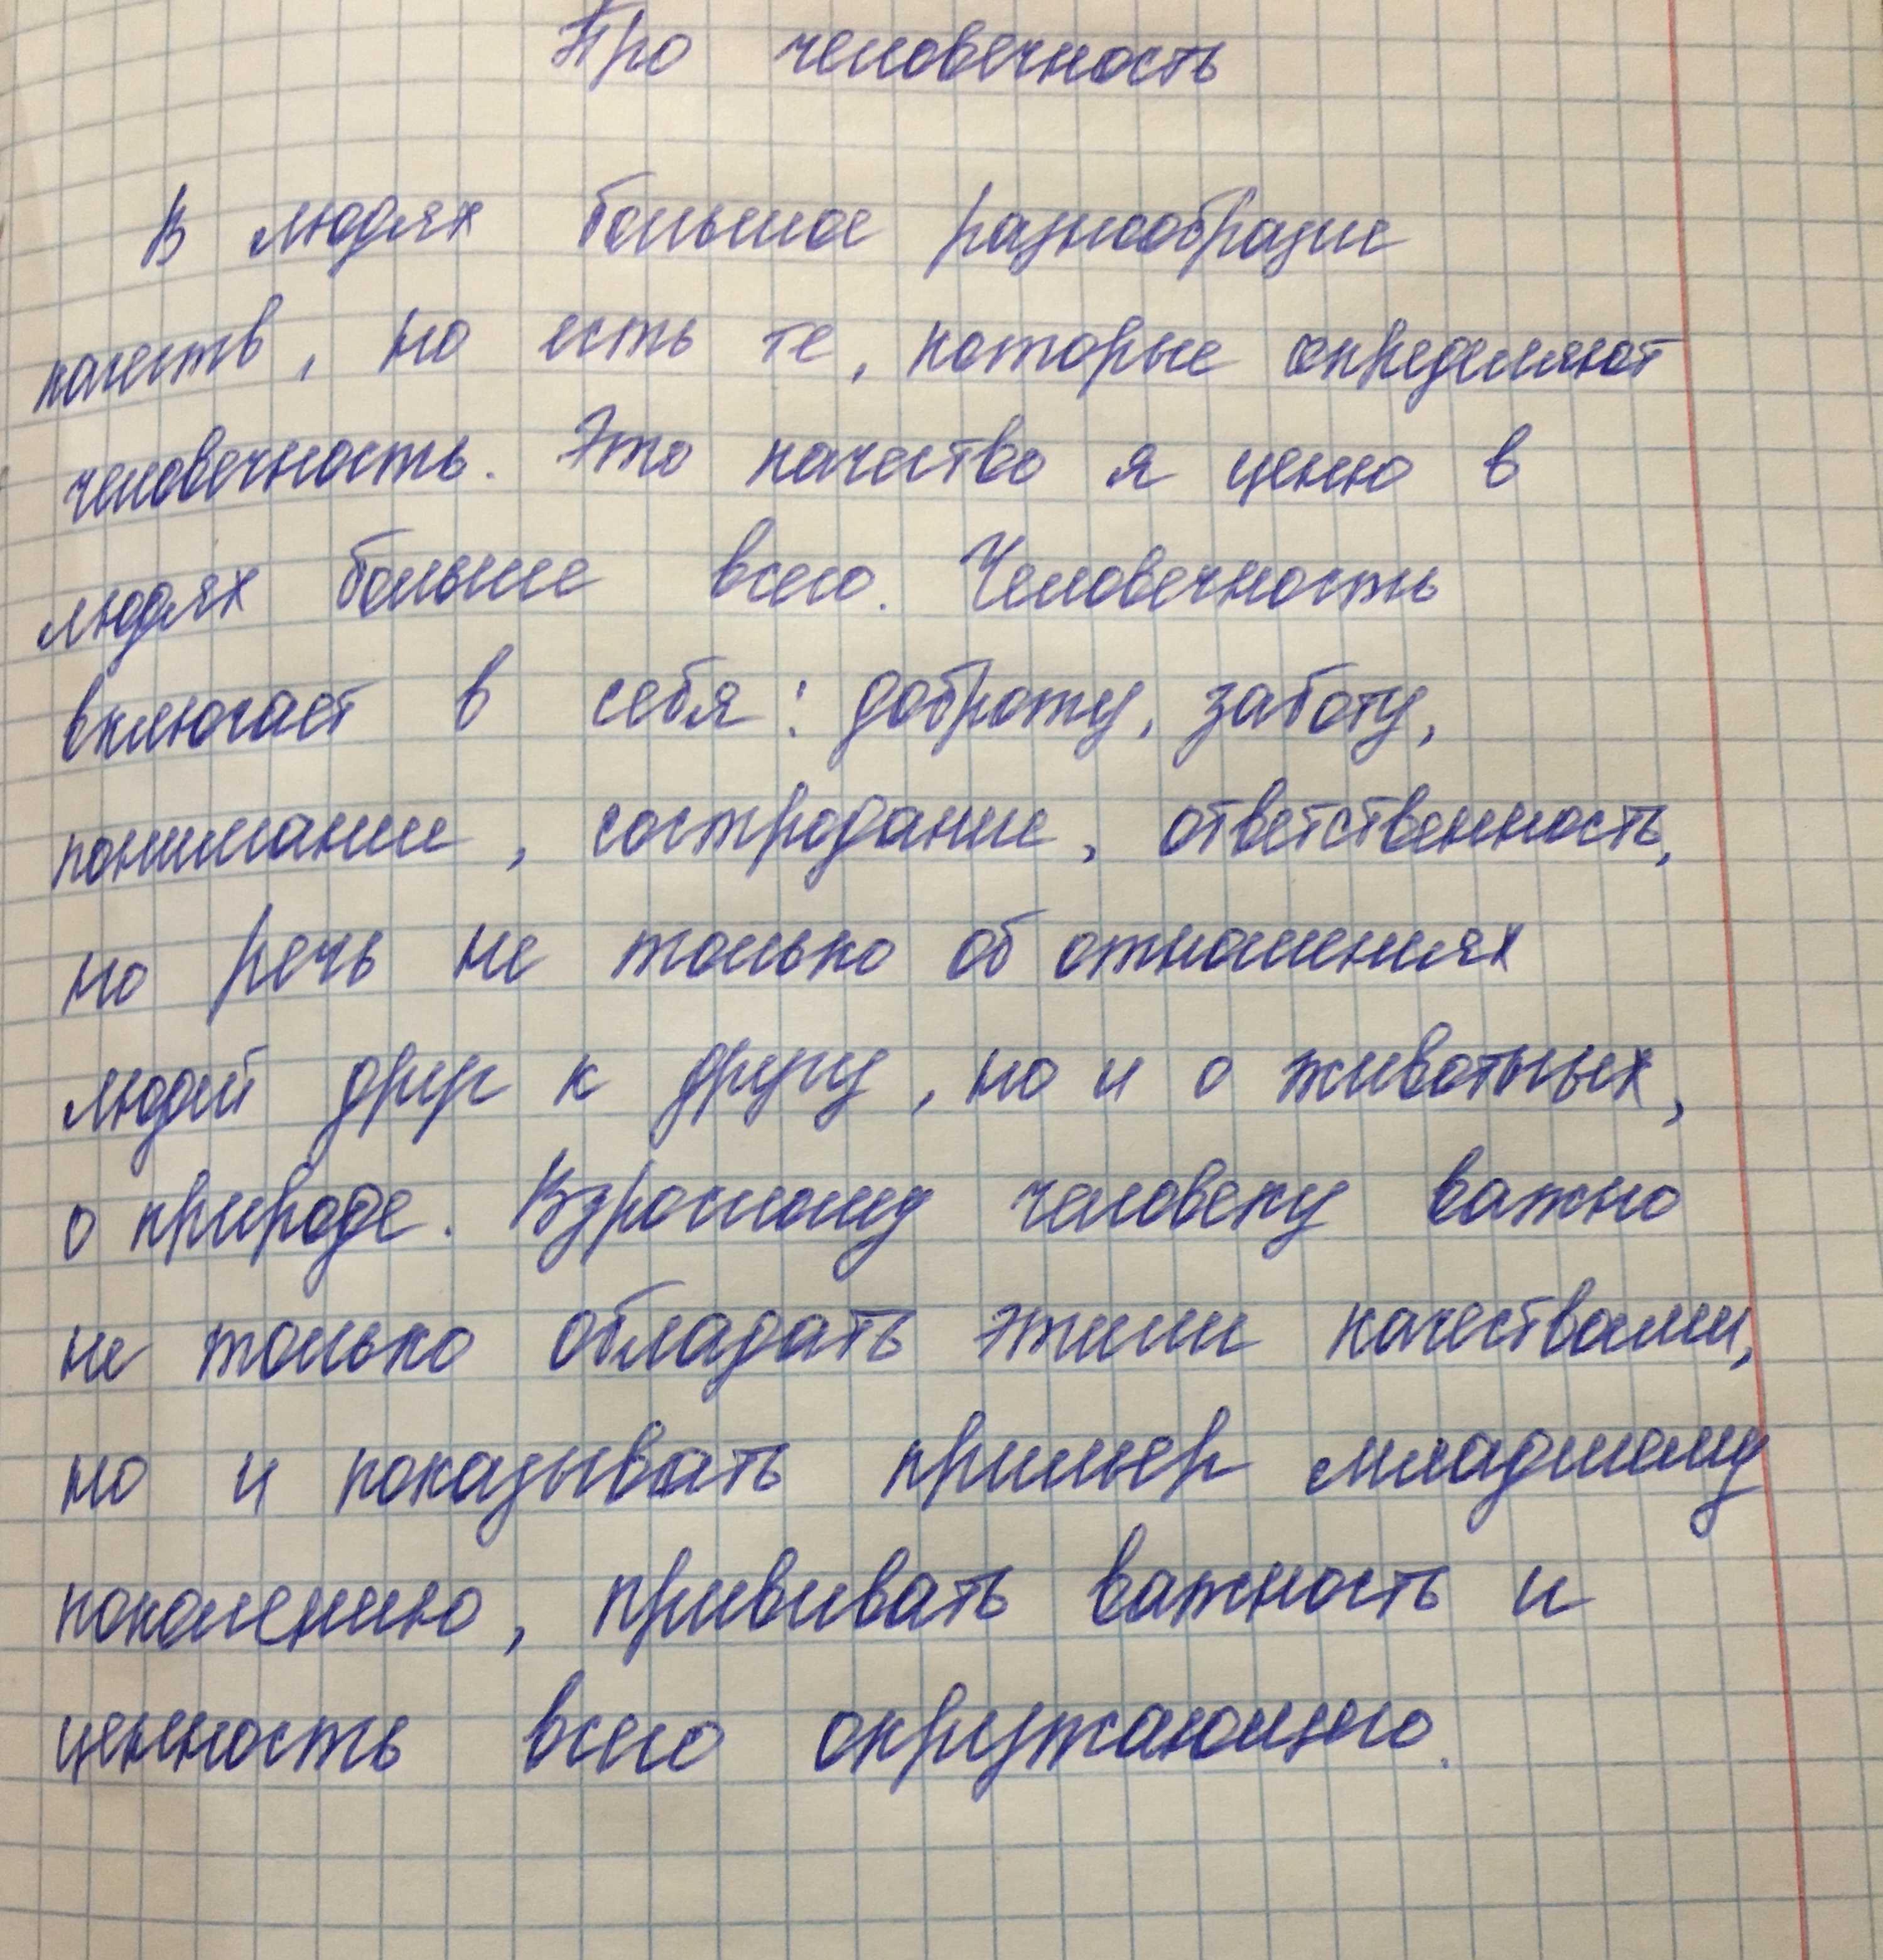 Про человечность
В людях большое разнообразие
качеств, но есть те, которые определяют
человечность. Это качество я ценю в
людях больше всего. Человечность
включает в себя: доброту, заботу,
понимание, состродание, ответственность,
но речь не только об отношениях
людей друг к другу, но и о животных,
о природе. Взрослому человеку важно
не только обладать этими качествами,
но и показывать пример младшему
поколению, прививать важность и
ценность всего окружающего.